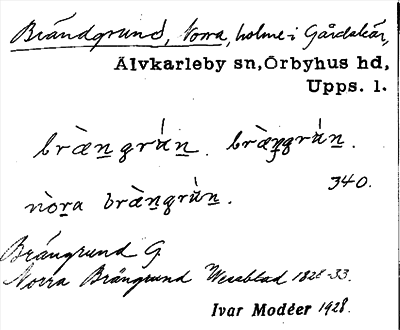 Brändgrund, Norra, holme i Gårdskär,
Älvkarleby sn, Örbyhus hd,
Upps. l.
brὰn̲grún̲. brὰn̲grún̲.
340.
nòra brὰn̲grùn̲.
Brängrund G.
Norra Brängrund Wessblad 1828-33.
Ivar Modéer 1928.